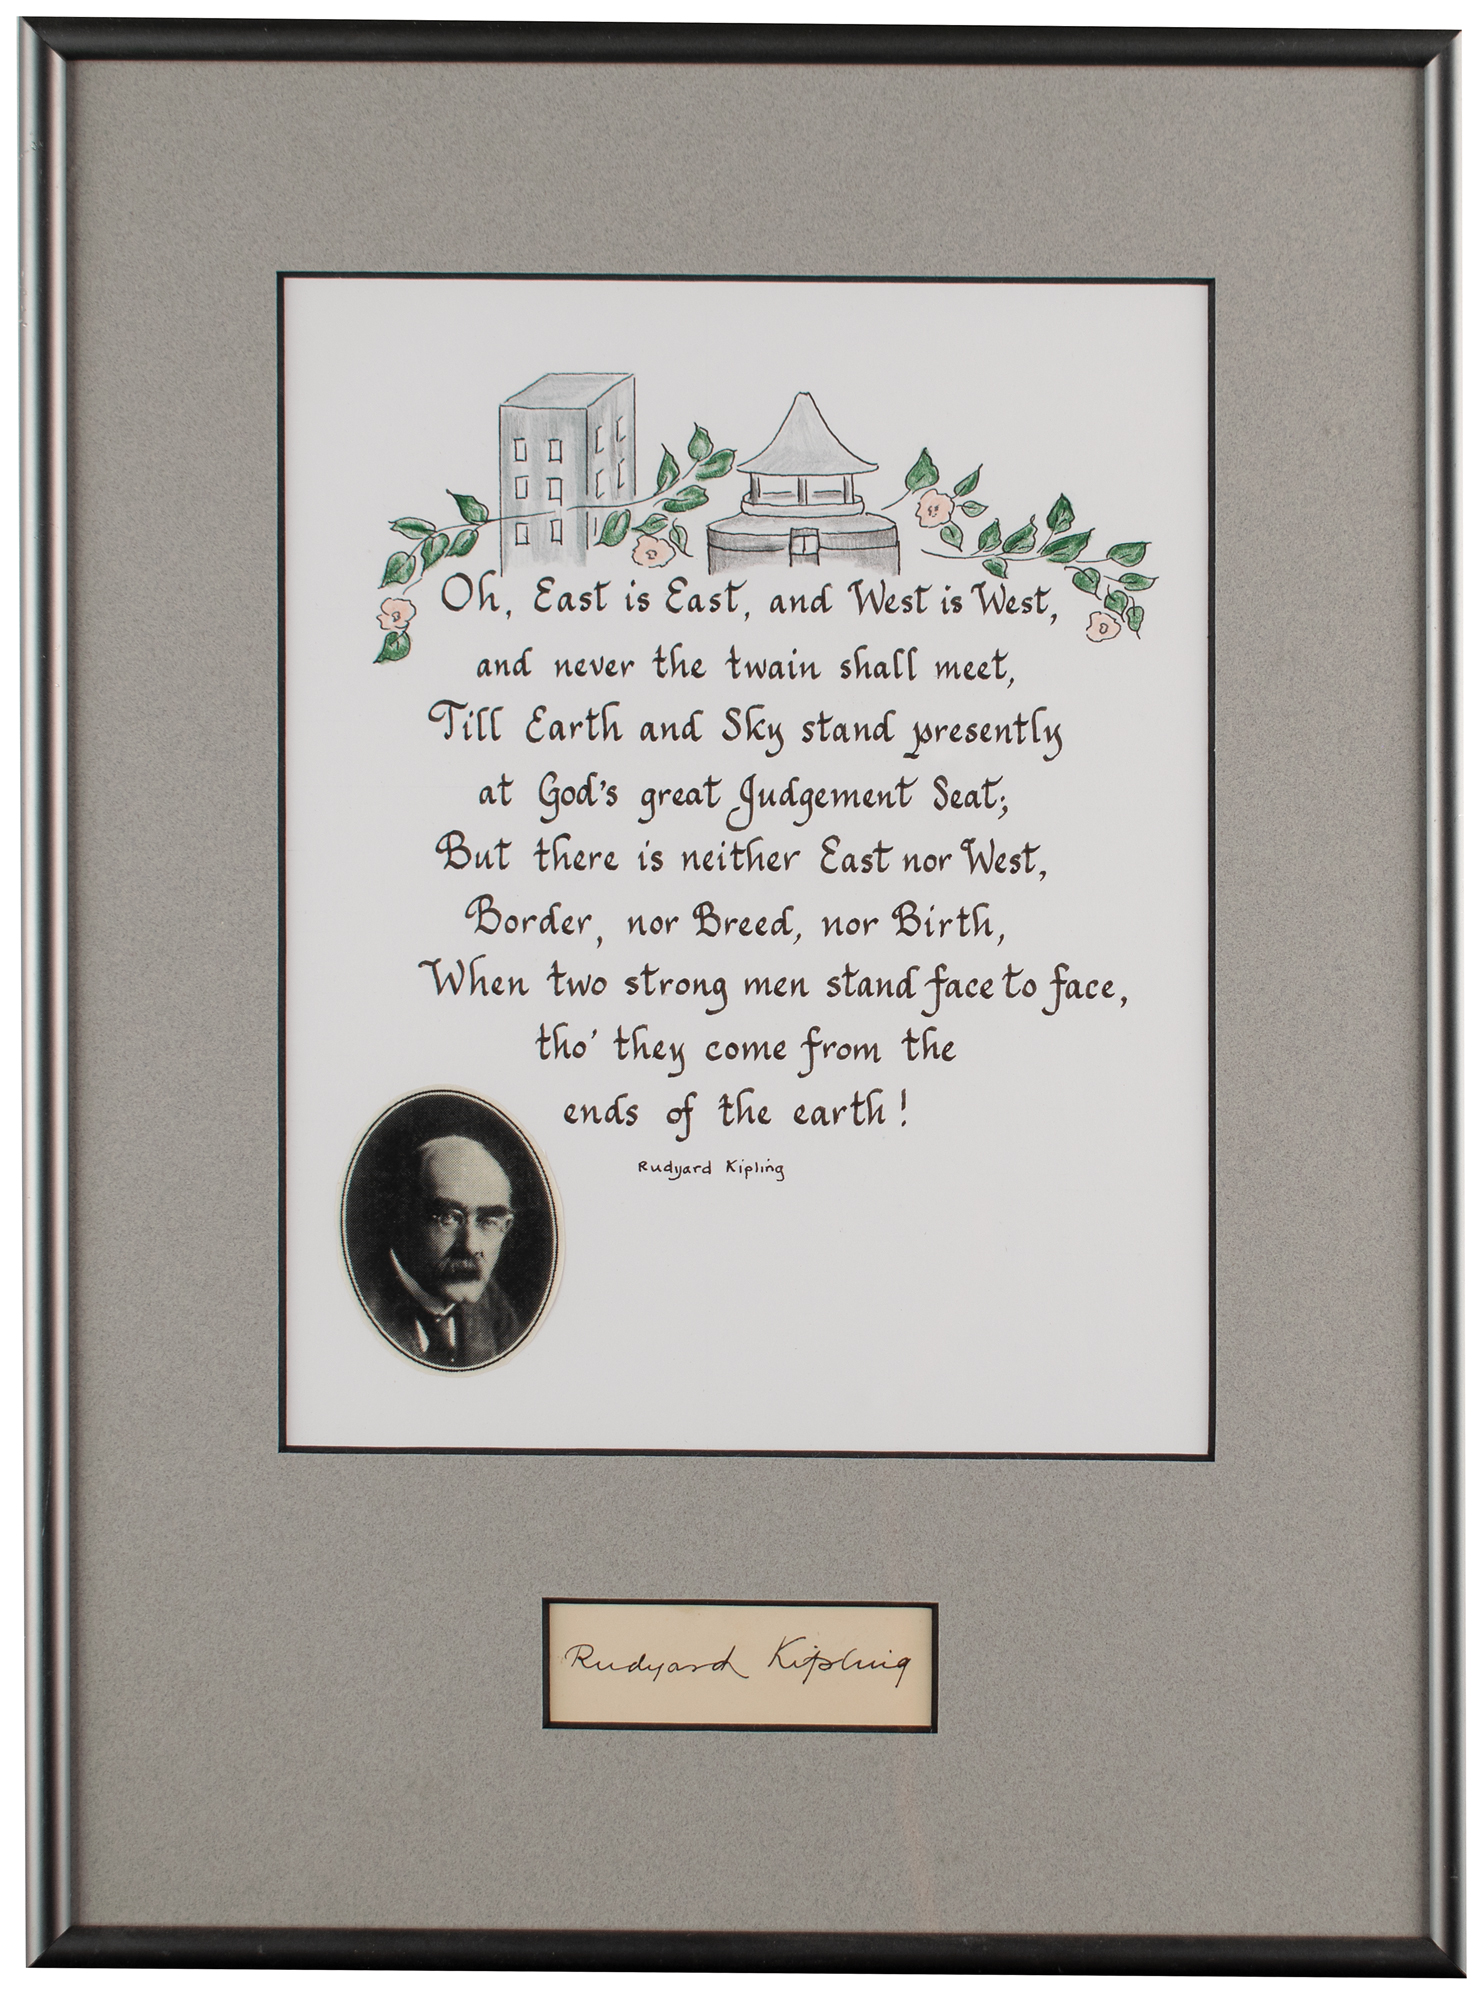 Oh, East is East, and West is West,
and never the twain shall meet,
Till Earth and Sky stand presently
at God's great Judgement Seat;
But there is neither East nor West,
Border, nor Breed, nor Birth,
When two strong men stand face to face,
tho' they come from the
ends of the earth!
Rudyard Kipling
Rudyard Kipling